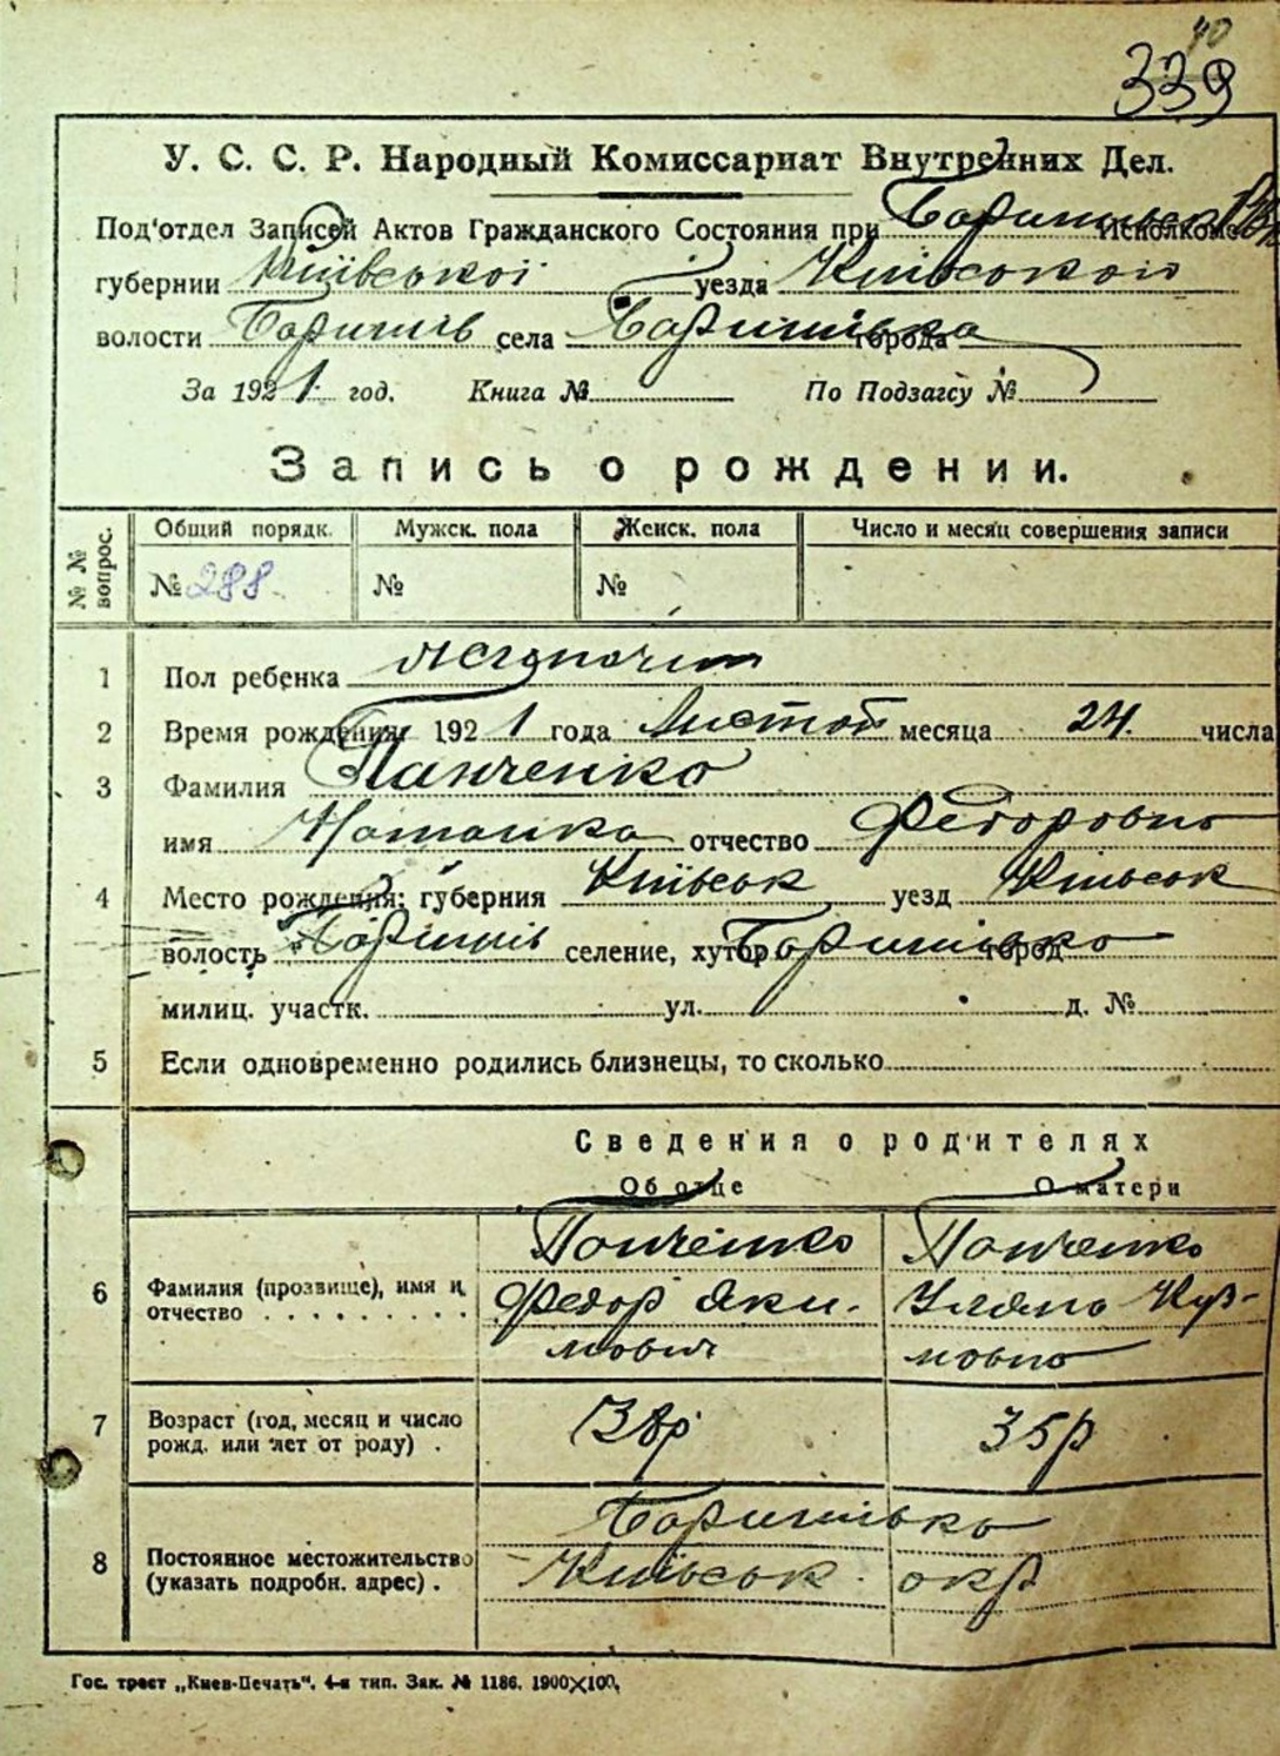 40
339
У. С. С. Р. Народный Комиссариат Внутренних Дел.
Под'отдел Записей Актов Гражданского Состояния при Исполкоме
губернии Київської уезда Київської
волости Баришів села Баришівка города
За 1921 год. Книга № По Подзагсу №
Запись о рождении.
№№ вопрос.
Общий порядк. Мужск. пола Женск. пола Число и месяц совершения записи
№ 288 № №
1 Пол ребенка
2 Время рождения: 1921 года Листоп месяца 24. числа
3 Фамилия Панченко
имя отчество Федоровна
4 Место рождения: губерния Київськ уезд Київськ
волость Баришів селение, хутор Баришівка город
милиц. участк. ул. д. №
5 Если одновременно родились близнецы, то сколько
Сведения о родителях
Об отце О матери
Панченко Панченко
6 Фамилия (прозвище), имя и Федор Яки- Уляна Куз-
отчество . . . . . . . . . мович мовна
7 Возраст (год, месяц и число 38р 35р
рожд. или лет от роду) .
Баришівка
8 Постоянное местожительство Київськ. окр
(указать подробн. адрес) .
Гос. трест „Киев-Печать“. 4-я тип. Зак. № 1186. 1900×100.